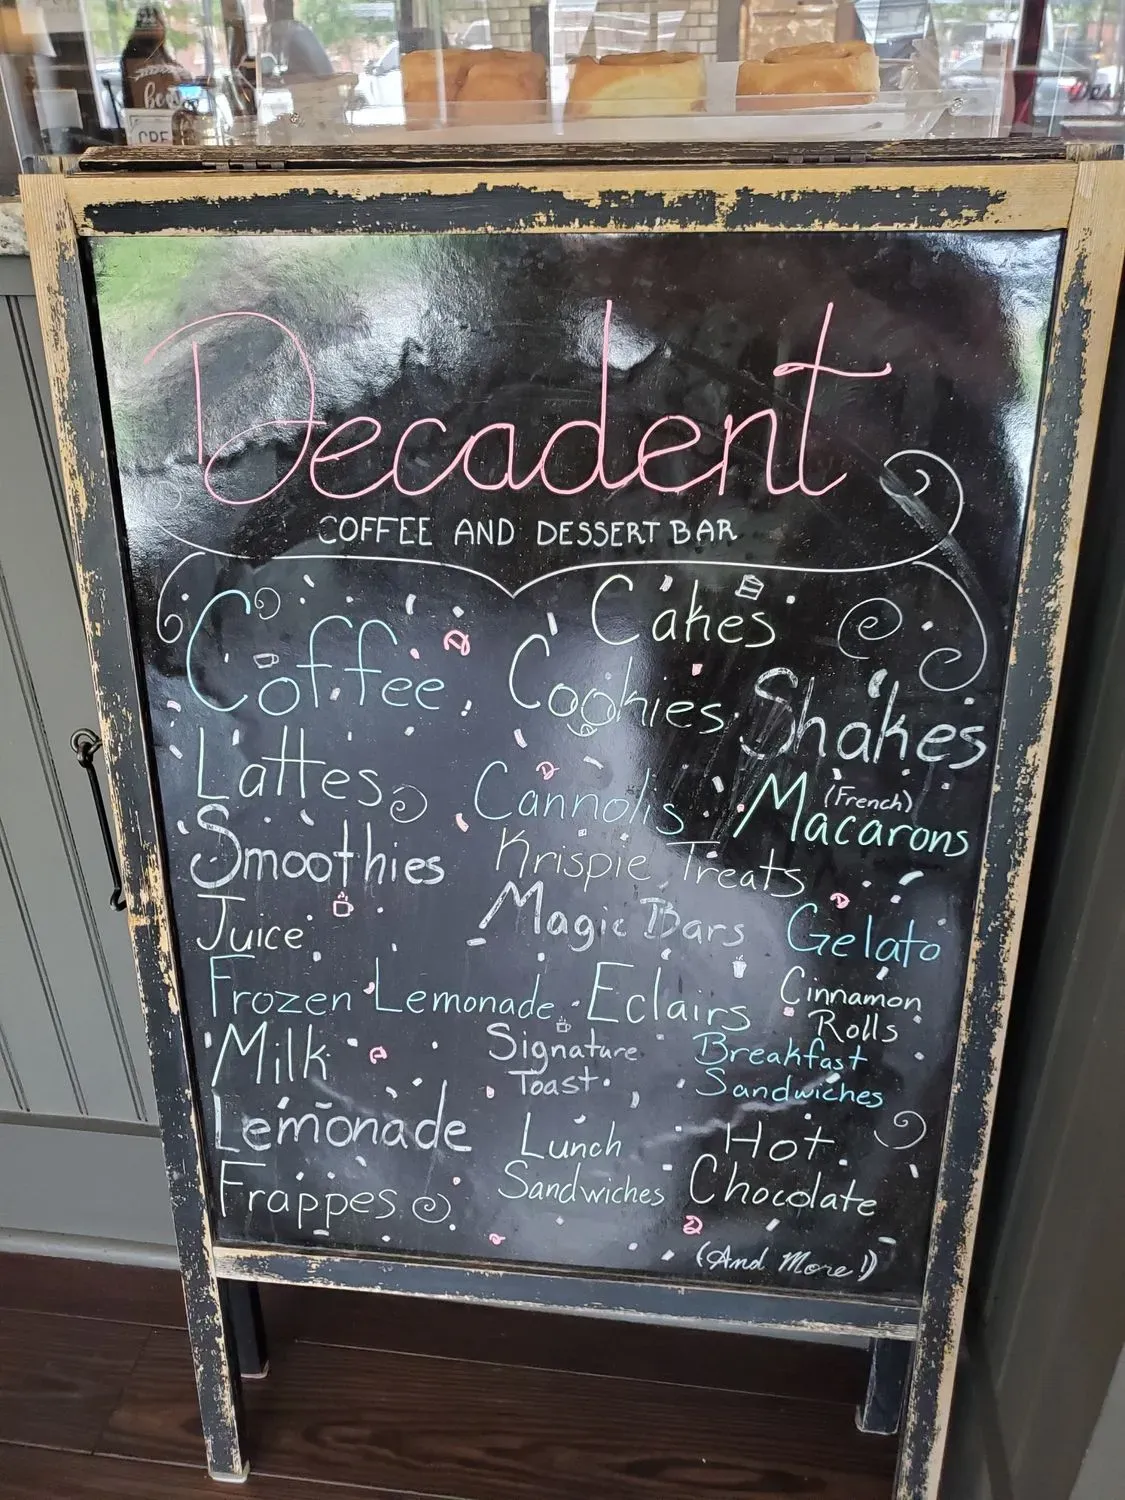 Decadent
COFFEE AND DESSERT BAR
Coffee
Cakes
Cookies
Shakes
Lattes
Cannolis
(French)
Macarons
Smoothies
Krispie Treats
Juice
Magic Bars
Gelato
Frozen Lemonade
Eclairs
Cinnamon
Rolls
Milk
Signature
Toast
Breakfast
Sandwiches
Lemonade
Lunch
Sandwiches
Hot
Chocolate
Frappes
(And More!)